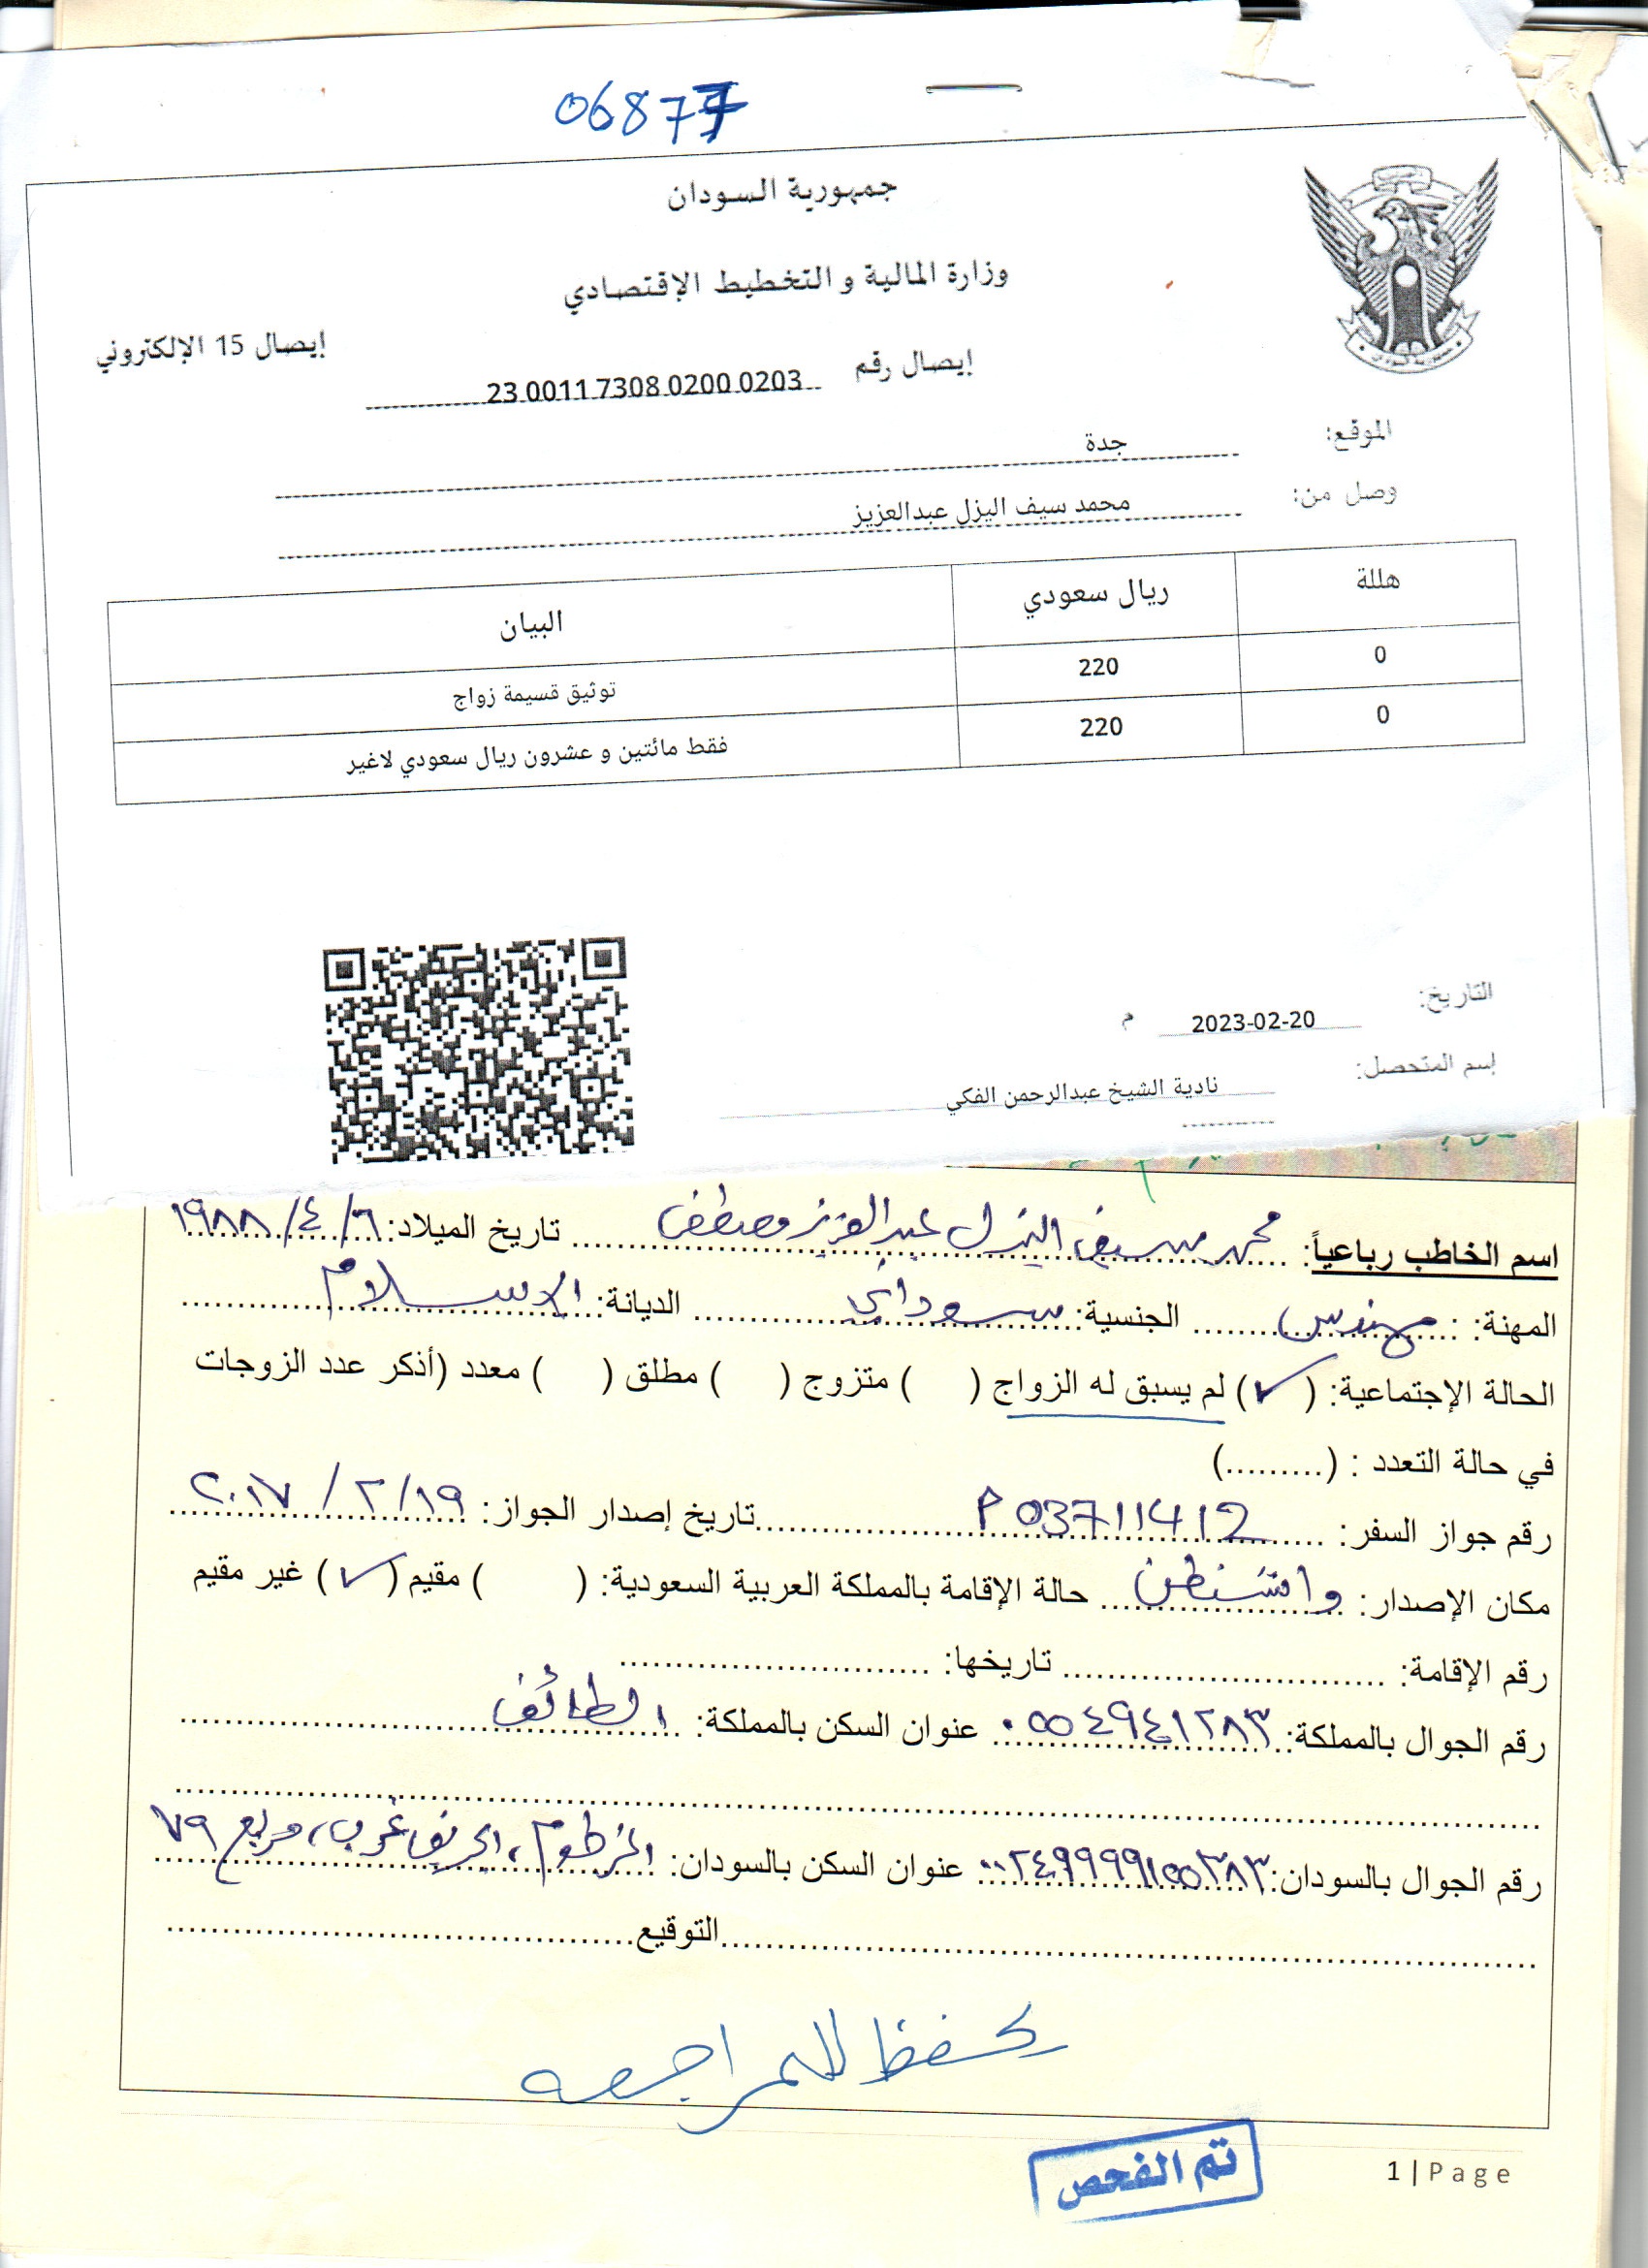 06877
جمهورية السودان
وزارة المالية و التخطيط الإقتصادي
إيصال 15 الإلكتروني
إيصال رقم 23 0011 7308 0200 0203
الموقع: جدة
وصل من: محمد سيف اليزل عبدالعزيز
هللة ريال سعودي البيان
0 220 توثيق قسيمة زواج
0 220 فقط مائتين و عشرون ريال سعودي لاغير
التاريخ: 2023-02-20 م
إسم المتحصل: نادية الشيخ عبدالرحمن الفكي
اسم الخاطب رباعياً: محمد سيف اليزل عبدالعزيز مصطفى تاريخ الميلاد: ١٩٨٨/٤/٦
المهنة: : مهندس الجنسية: سوداني الديانة: الاسلام
الحالة الإجتماعية: (✓) لم يسبق له الزواج ( ) متزوج ( ) مطلق ( ) معدد (أذكر عدد الزوجات
في حالة التعدد : (.........)
رقم جواز السفر: P 03711412 تاريخ إصدار الجواز: ٢٠١٧/٢/١٩
مكان الإصدار: واشنطن حالة الإقامة بالمملكة العربية السعودية: ( ) مقيم (✓) غير مقيم
رقم الإقامة: .......... تاريخها: ..........
رقم الجوال بالمملكة: ٠٥٥٤٩٤١٢٨٣ عنوان السكن بالمملكة: الطائف
رقم الجوال بالسودان: ٠٠٢٤٩٩٩٩١٥٥٣٨٣ عنوان السكن بالسودان: الخرطوم، الجريف غرب، مربع ٧٩
التوقيع
يحفظ للمراجعه
تم الفحص
1 | Page